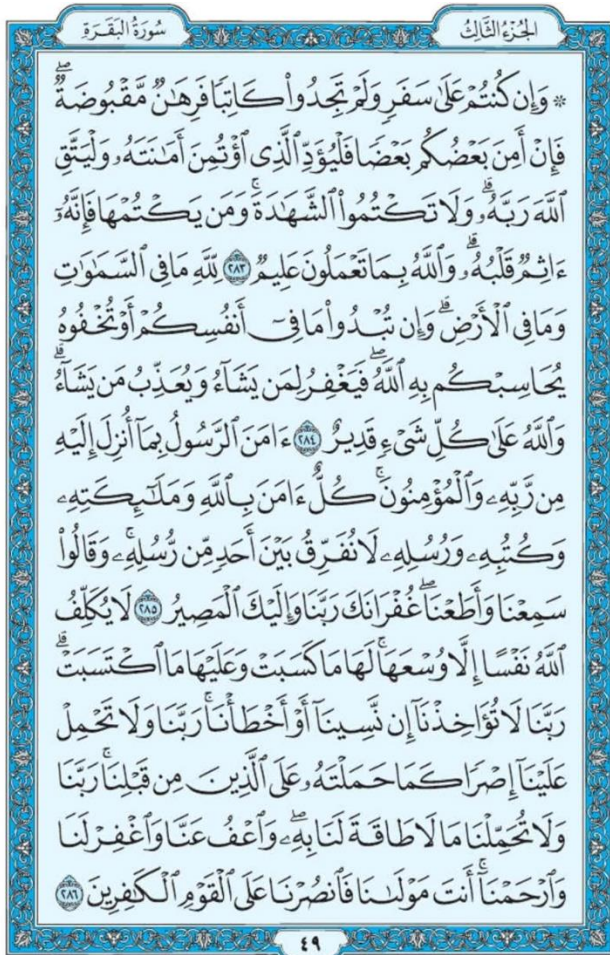 الجُزْءُ الثَّالِثُ
سُورَةُ البَقَرَةِ
۞ وَإِن كُنتُمْ عَلَىٰ سَفَرٍ وَلَمْ تَجِدُوا۟ كَاتِبًا فَرِهَـٰنٌ مَّقْبُوضَةٌ ۖ
فَإِنْ أَمِنَ بَعْضُكُم بَعْضًا فَلْيُؤَدِّ ٱلَّذِى ٱؤْتُمِنَ أَمَـٰنَتَهُۥ وَلْيَتَّقِ
ٱللَّهَ رَبَّهُۥ ۗ وَلَا تَكْتُمُوا۟ ٱلشَّهَـٰدَةَ ۚ وَمَن يَكْتُمْهَا فَإِنَّهُۥٓ
ءَاثِمٌ قَلْبُهُۥ ۗ وَٱللَّهُ بِمَا تَعْمَلُونَ عَلِيمٌ ٢٨٣ لِّلَّهِ مَا فِى ٱلسَّمَـٰوَٰتِ
وَمَا فِى ٱلْأَرْضِ ۗ وَإِن تُبْدُوا۟ مَا فِىٓ أَنفُسِكُمْ أَوْ تُخْفُوهُ
يُحَاسِبْكُم بِهِ ٱللَّهُ ۖ فَيَغْفِرُ لِمَن يَشَآءُ وَيُعَذِّبُ مَن يَشَآءُ ۗ
وَٱللَّهُ عَلَىٰ كُلِّ شَىْءٍ قَدِيرٌ ٢٨٤ ءَامَنَ ٱلرَّسُولُ بِمَآ أُنزِلَ إِلَيْهِ
مِن رَّبِّهِۦ وَٱلْمُؤْمِنُونَ ۚ كُلٌّ ءَامَنَ بِٱللَّهِ وَمَلَـٰٓئِكَتِهِۦ
وَكُتُبِهِۦ وَرُسُلِهِۦ لَا نُفَرِّقُ بَيْنَ أَحَدٍ مِّن رُّسُلِهِۦ ۚ وَقَالُوا۟
سَمِعْنَا وَأَطَعْنَا ۖ غُفْرَانَكَ رَبَّنَا وَإِلَيْكَ ٱلْمَصِيرُ ٢٨٥ لَا يُكَلِّفُ
ٱللَّهُ نَفْسًا إِلَّا وُسْعَهَا ۚ لَهَا مَا كَسَبَتْ وَعَلَيْهَا مَا ٱكْتَسَبَتْ ۗ
رَبَّنَا لَا تُؤَاخِذْنَآ إِن نَّسِينَآ أَوْ أَخْطَأْنَا ۚ رَبَّنَا وَلَا تَحْمِلْ
عَلَيْنَآ إِصْرًا كَمَا حَمَلْتَهُۥ عَلَى ٱلَّذِينَ مِن قَبْلِنَا ۚ رَبَّنَا
وَلَا تُحَمِّلْنَا مَا لَا طَاقَةَ لَنَا بِهِۦ ۖ وَٱعْفُ عَنَّا وَٱغْفِرْ لَنَا
وَٱرْحَمْنَآ ۚ أَنتَ مَوْلَىٰنَا فَٱنصُرْنَا عَلَى ٱلْقَوْمِ ٱلْكَـٰفِرِينَ ٢٨٦
٤٩